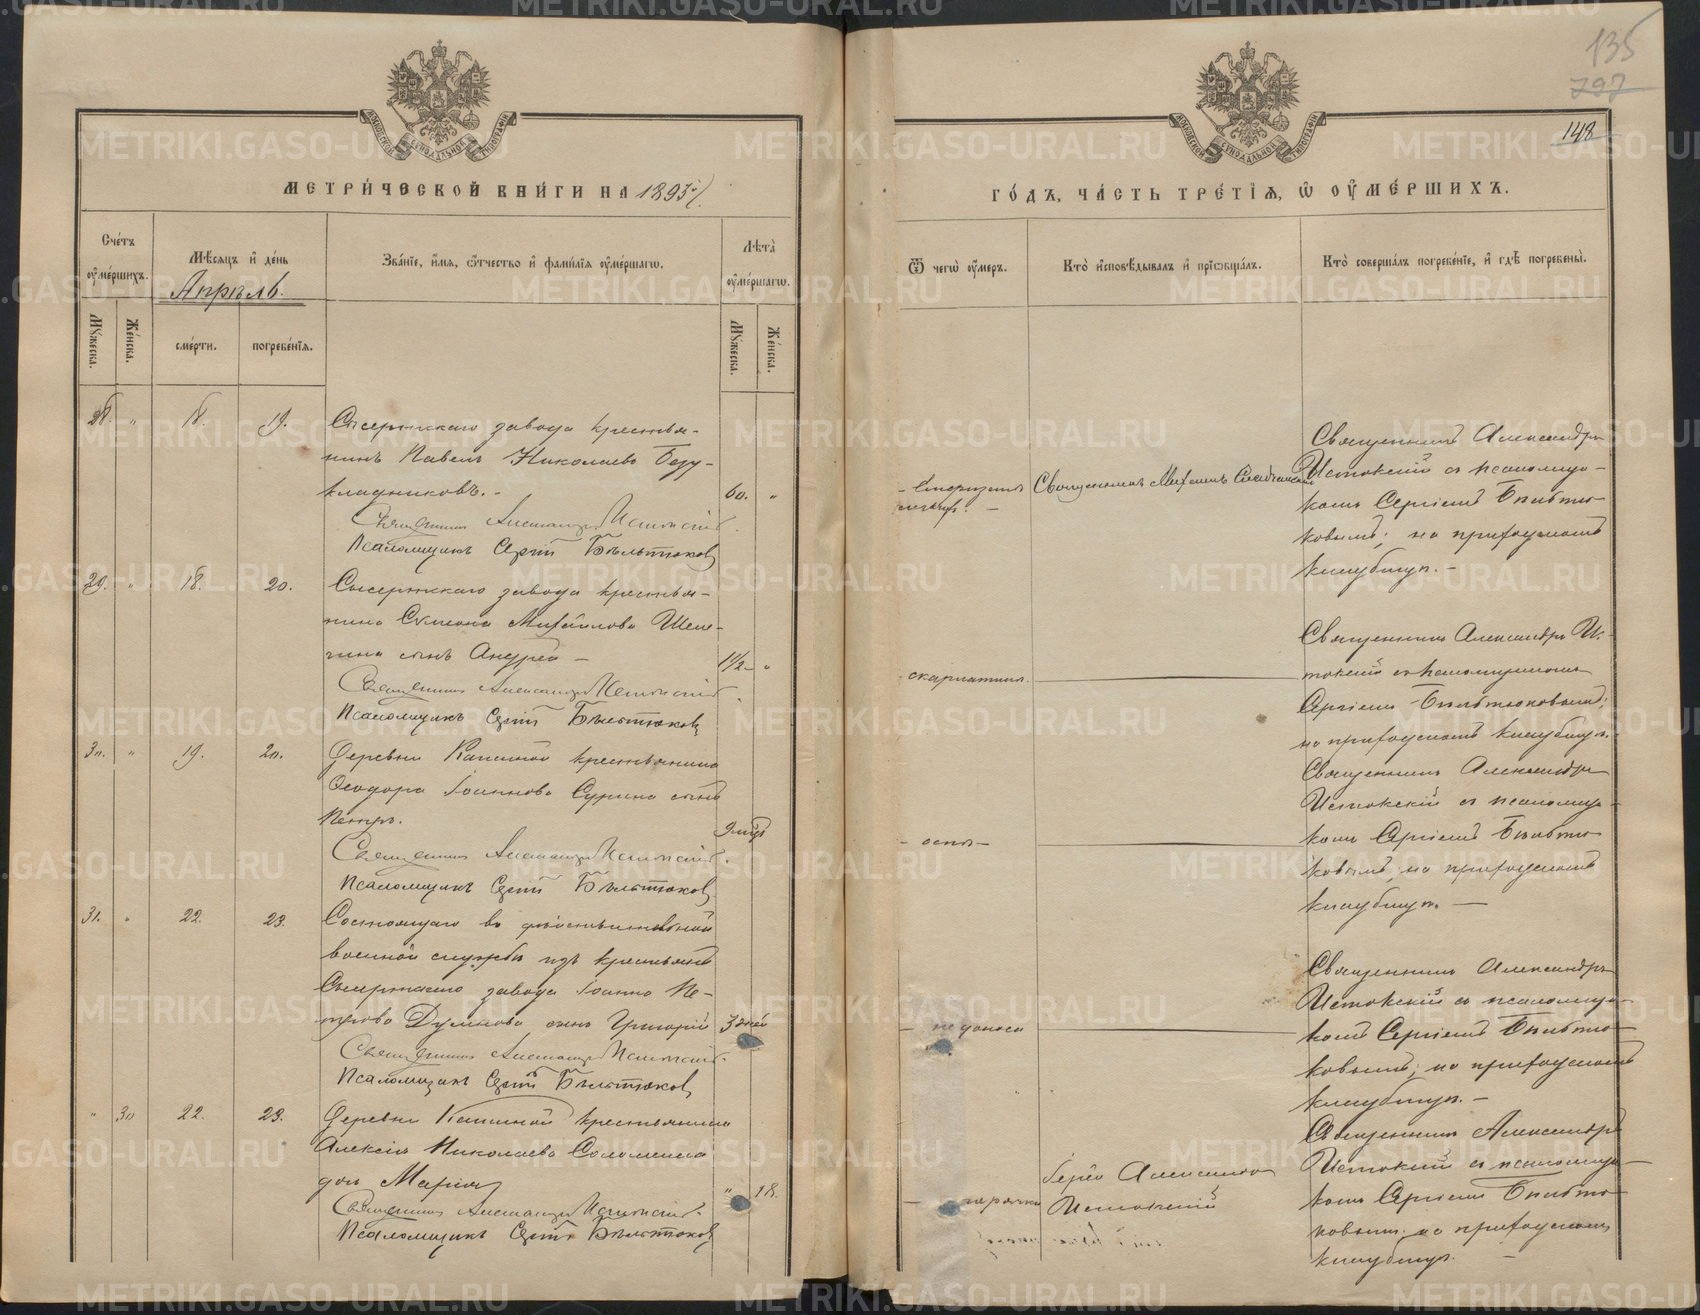 135
797
148
МЕТРИ́ЧЕСКОЙ КНИ́ГИ НА 1895
ГО́ДЪ, ЧА́СТЬ ТРЕ́ТІЯ, Ѽ ОУ҆МЕ́РШИХЪ.
Сче́тъ оу҆ме́ршихъ.
Мѣ́сяцъ и҆ де́нь
Апрѣль.
Зва́нїе, и҆́мя, ѻ҆́тчество и҆ фами́лїя оу҆ме́ршагѡ.
Лѣ́та оу҆ме́ршагѡ.
Ѿ чегѡ̀ оу҆́меръ.
Кто̀ и҆сповѣ́дывалъ и҆ прїѡбща́лъ.
Кто̀ соверша́лъ погребе́нїе, и҆ гдѣ̀ погребены̀.
Мꙋ́жеска.
Же́нска.
сме́рти.
погребе́нїя.
Мꙋ́жеска.
Же́нска.
28. " 18. 19.
Сысертскаго завода крестья-
нинъ Павелъ Николаевъ Безу-
кладниковъ.
60. "
Священникъ Александръ Истокскій
Псаломщикъ Сергій Бѣльтюковъ
Священникъ Михаилъ
Священникъ Александръ
Истокскій съ псаломщи-
комъ Сергіемъ Бѣльтю-
ковымъ; на приходскомъ
кладбищѣ.
29. " 18. 20.
Сысертскаго завода крестья-
нина Симеона Михайлова Шеп-
гина сынъ Андрей
1 1/2 "
Священникъ Александръ Истокскій
Псаломщикъ Сергій Бѣльтюковъ
скарлатина.
Священникъ Александръ Ис-
токскій съ псаломщикомъ
Сергіемъ Бѣльтюковымъ;
на приходскомъ кладбищѣ.
30. " 19. 20.
Деревни Кашиной крестьянина
Ѳеодора Іоаннова Сурина сынъ
Петръ.
9 мѣс
Священникъ Александръ Истокскій
Псаломщикъ Сергій Бѣльтюковъ
оспы
Священникъ Александръ
Истокскій съ псаломщи-
комъ Сергіемъ Бѣльтю-
ковымъ, на приходскомъ
кладбищѣ.
31. " 22. 23.
Состоящаго въ дѣйствительной
военной службѣ изъ крестьянъ
Сысертскаго завода Іоанна Пе-
трова сынъ Григорій
3 дней
Священникъ Александръ Истокскій
Псаломщикъ Сергій Бѣльтюковъ
недоноса
Священникъ Александръ
Истокскій съ псаломщи-
комъ Сергіемъ Бѣльтю-
ковымъ; на приходскомъ
кладбищѣ.
" 30 22. 23.
Деревни Кашиной крестьянина
Алексія Николаева Соломеина
дочь Марія
" 18.
Священникъ Александръ Истокскій
Псаломщикъ Сергій Бѣльтюковъ
горячка
Іерей Александръ
Истокскій
Священникъ Александръ
Истокскій съ псаломщи-
комъ Сергіемъ Бѣльтю-
ковымъ; на приходскомъ
кладбищѣ.
METRIKI.GASO-URAL.RU